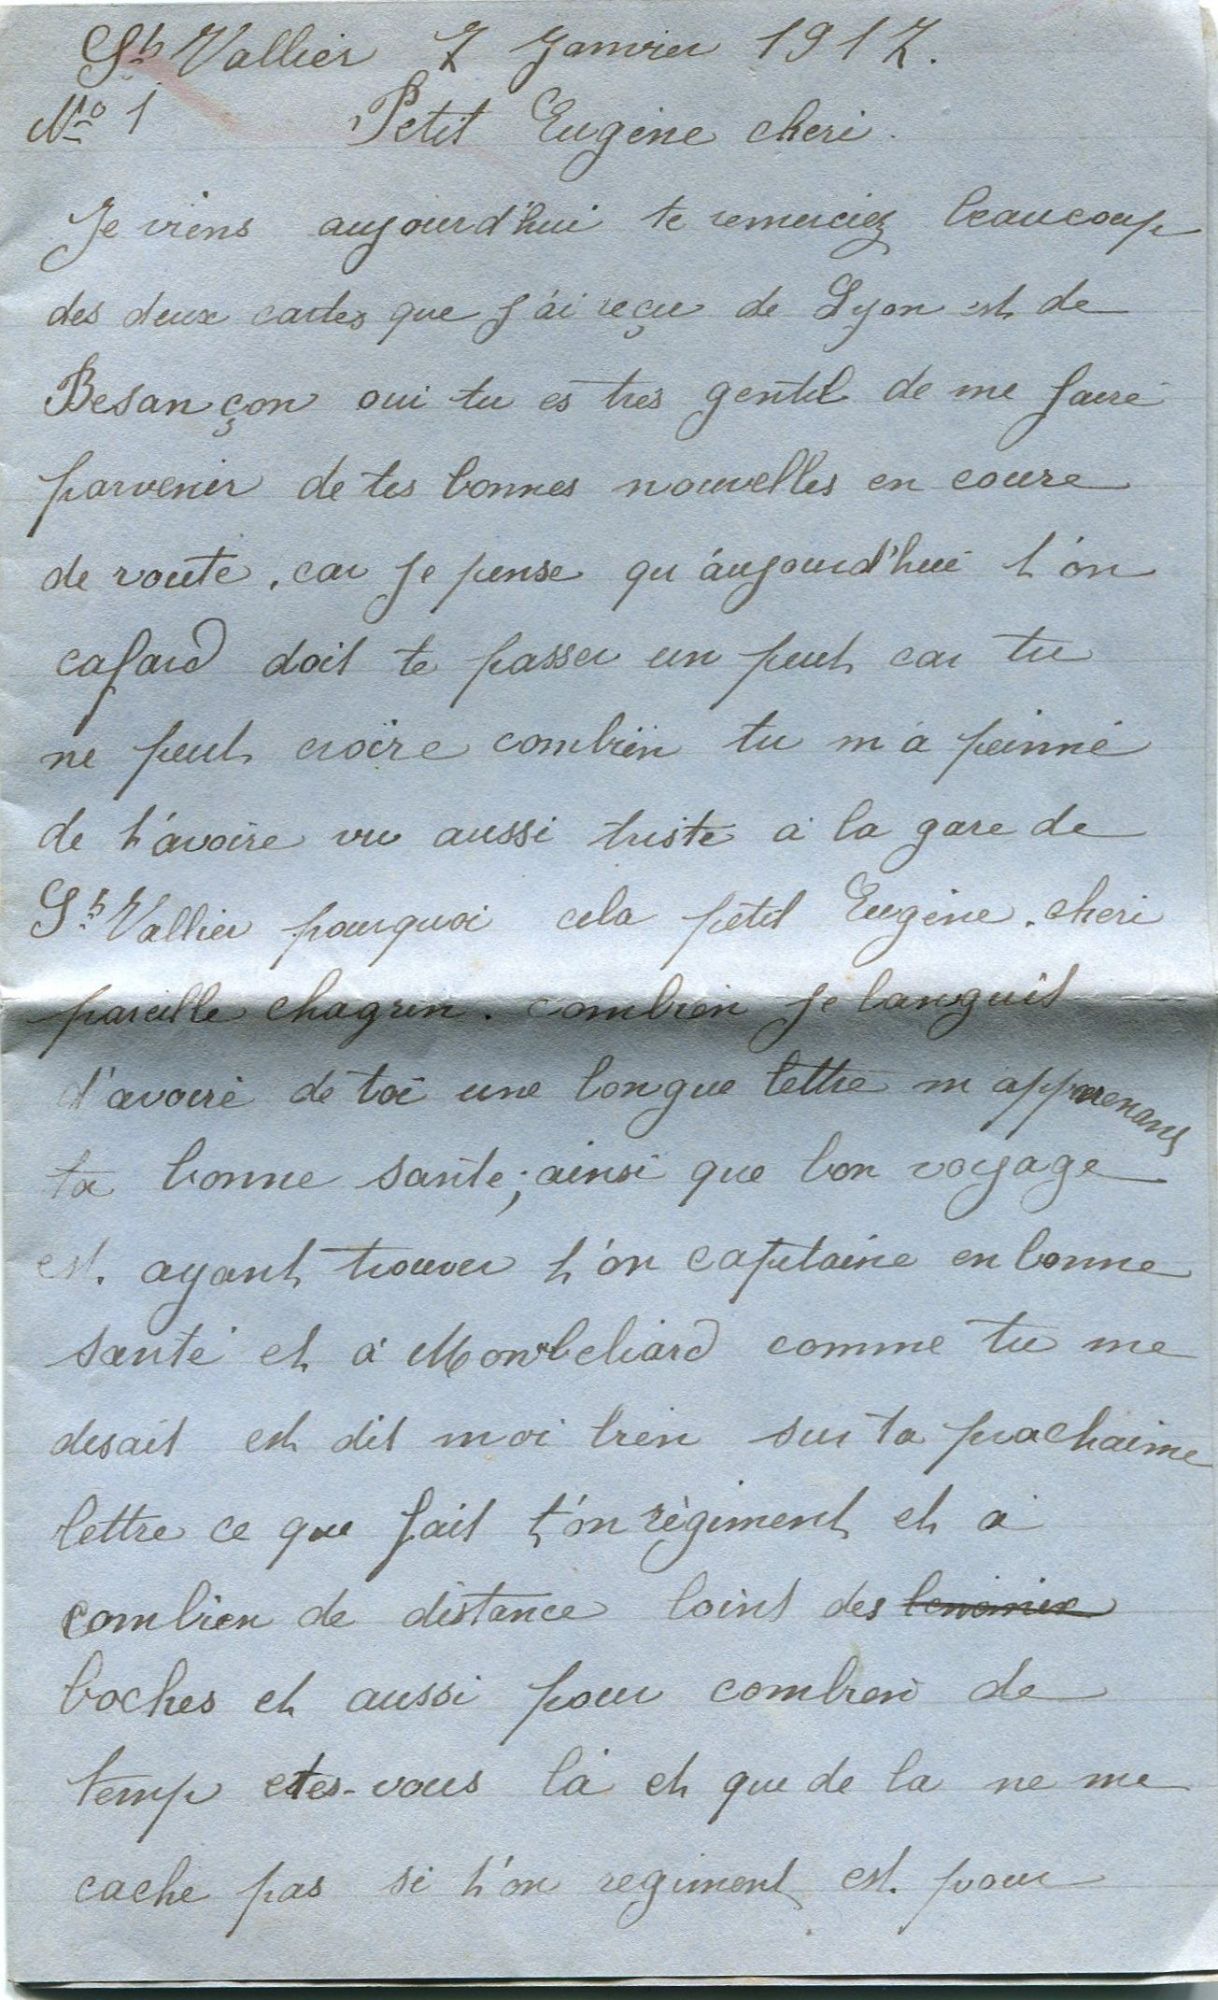 St Vallier 7 Janvier 1917.
No 1 Petit Eugène cheri.
Je viens aujourd'hui te remerciez beaucoup
des deux cartes que j'ai reçu de Lyon est de
Besançon oui tu es tres gentil de me faire
parvenir de tes bonnes nouvelles en coure
de route, car je pense qu'áujourd'hui t'on
cafard doit te passer un peut car tu
ne peut croire combien tu m'a peinné
de t'avoire vu aussi triste a la gare de
St Vallier pourquoi cela petit Eugène. cheri
pareille chagrin. combien je languit
d'avoire de toi une longue lettre m'apprenant
ta bonne santé; ainsi que bon voyage
est. ayant trouver t'on capitaine en bonne
santé et à Monbeliard comme tu me
desait est dit moi bien sur ta prochaine
lettre ce que fait t'on règiment et a
combien de distance loint des
boches et aussi pour combien de
temp etes-vous là et que de la ne me
cache pas si t'on regiment est. pour